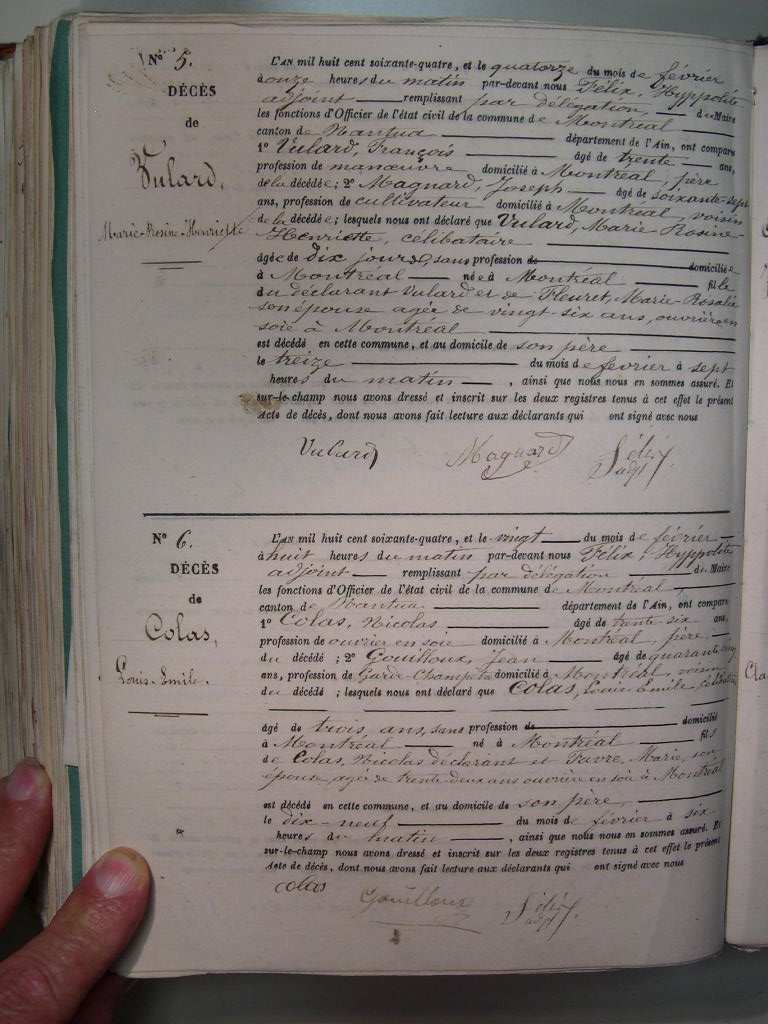 N° 5.
DÉCÈS
de
Vulard,
Marie-Rosine-Henriette
L'AN mil huit cent soixante-quatre, et le quatorze du mois de février
à onze heures du matin par-devant nous Félix, Hyppolite
adjoint remplissant par délégation, de Maire
les fonctions d'Officier de l'état civil de la commune de Montréal
canton de Nantua département de l'Ain, ont comparu
1° Vulard, François âgé de trente ans,
profession de manœuvre domicilié à Montréal, père
de la décédée; 2° Magnard, Joseph âgé de soixante-sept
ans, profession de cultivateur domicilié à Montréal, voisin
de la décédée; lesquels nous ont déclaré que Vulard, Marie Rosine-
Henriette, célibataire
âgée de dix jours, sans profession de domiciliée
à Montréal née à Montréal fille
du déclarant Vulard et de Fleuret, Marie Rosalie
son épouse agée de vingt-six ans, ouvrière en
soie à Montréal
est décédé en cette commune, et au domicile de son père
le treize du mois de février à sept
heures du matin, ainsi que nous nous en sommes assuré. Et
sur-le-champ nous avons dressé et inscrit sur les deux registres tenus à cet effet le présent
Acte de décès, dont nous avons fait lecture aux déclarants qui ont signé avec nous
Vulard Magnard Félix
adjt
N° 6.
DÉCÈS
de
Colas,
Louis-Emile.
L'AN mil huit cent soixante-quatre, et le vingt du mois de février
à huit heures du matin par-devant nous Félix, Hyppolite
adjoint remplissant par délégation de Maire
les fonctions d'Officier de l'état civil de la commune de Montréal,
canton de Nantua département de l'Ain, ont comparu
1° Colas, Nicolas âgé de trente six ans,
profession de ouvrier en soie domicilié à Montréal, père
du décédé; 2° Gouilloux, Jean âgé de quarante cinq
ans, profession de Garde-Champêtre domicilié à Montréal, voisin
du décédé; lesquels nous ont déclaré que Colas, Louis Emile, célibataire
âgé de trois, ans, sans profession de domicilié
à Montréal né à Montréal fils
de Colas, Nicolas déclarant et Favre, Marie, son
épouse, agée de trente deux ans ouvrière en soie à Montréal
est décédé en cette commune, et au domicile de son père,
le dix-neuf du mois de février à six
heures du matin, ainsi que nous nous en sommes assuré. Et
sur-le-champ nous avons dressé et inscrit sur les deux registres tenus à cet effet le présent
Acte de décès, dont nous avons fait lecture aux déclarants qui ont signé avec nous
Colas Gouilloux Félix
adjt